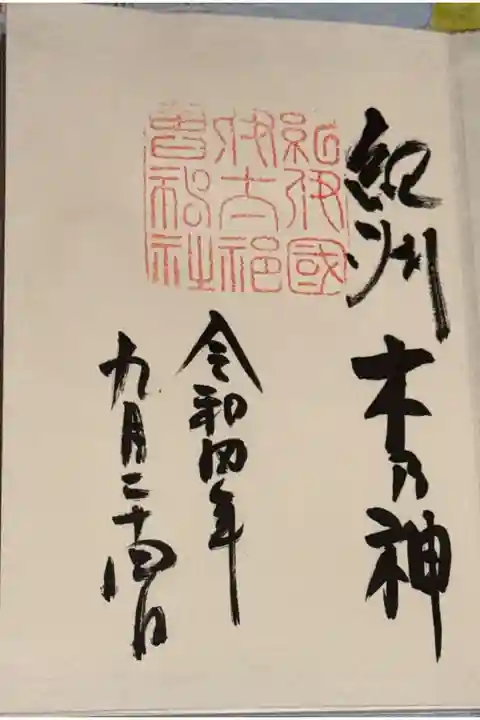 紀州 木乃神
紀伊國
伊太祁
曽神社
令和四年
九月二十四日